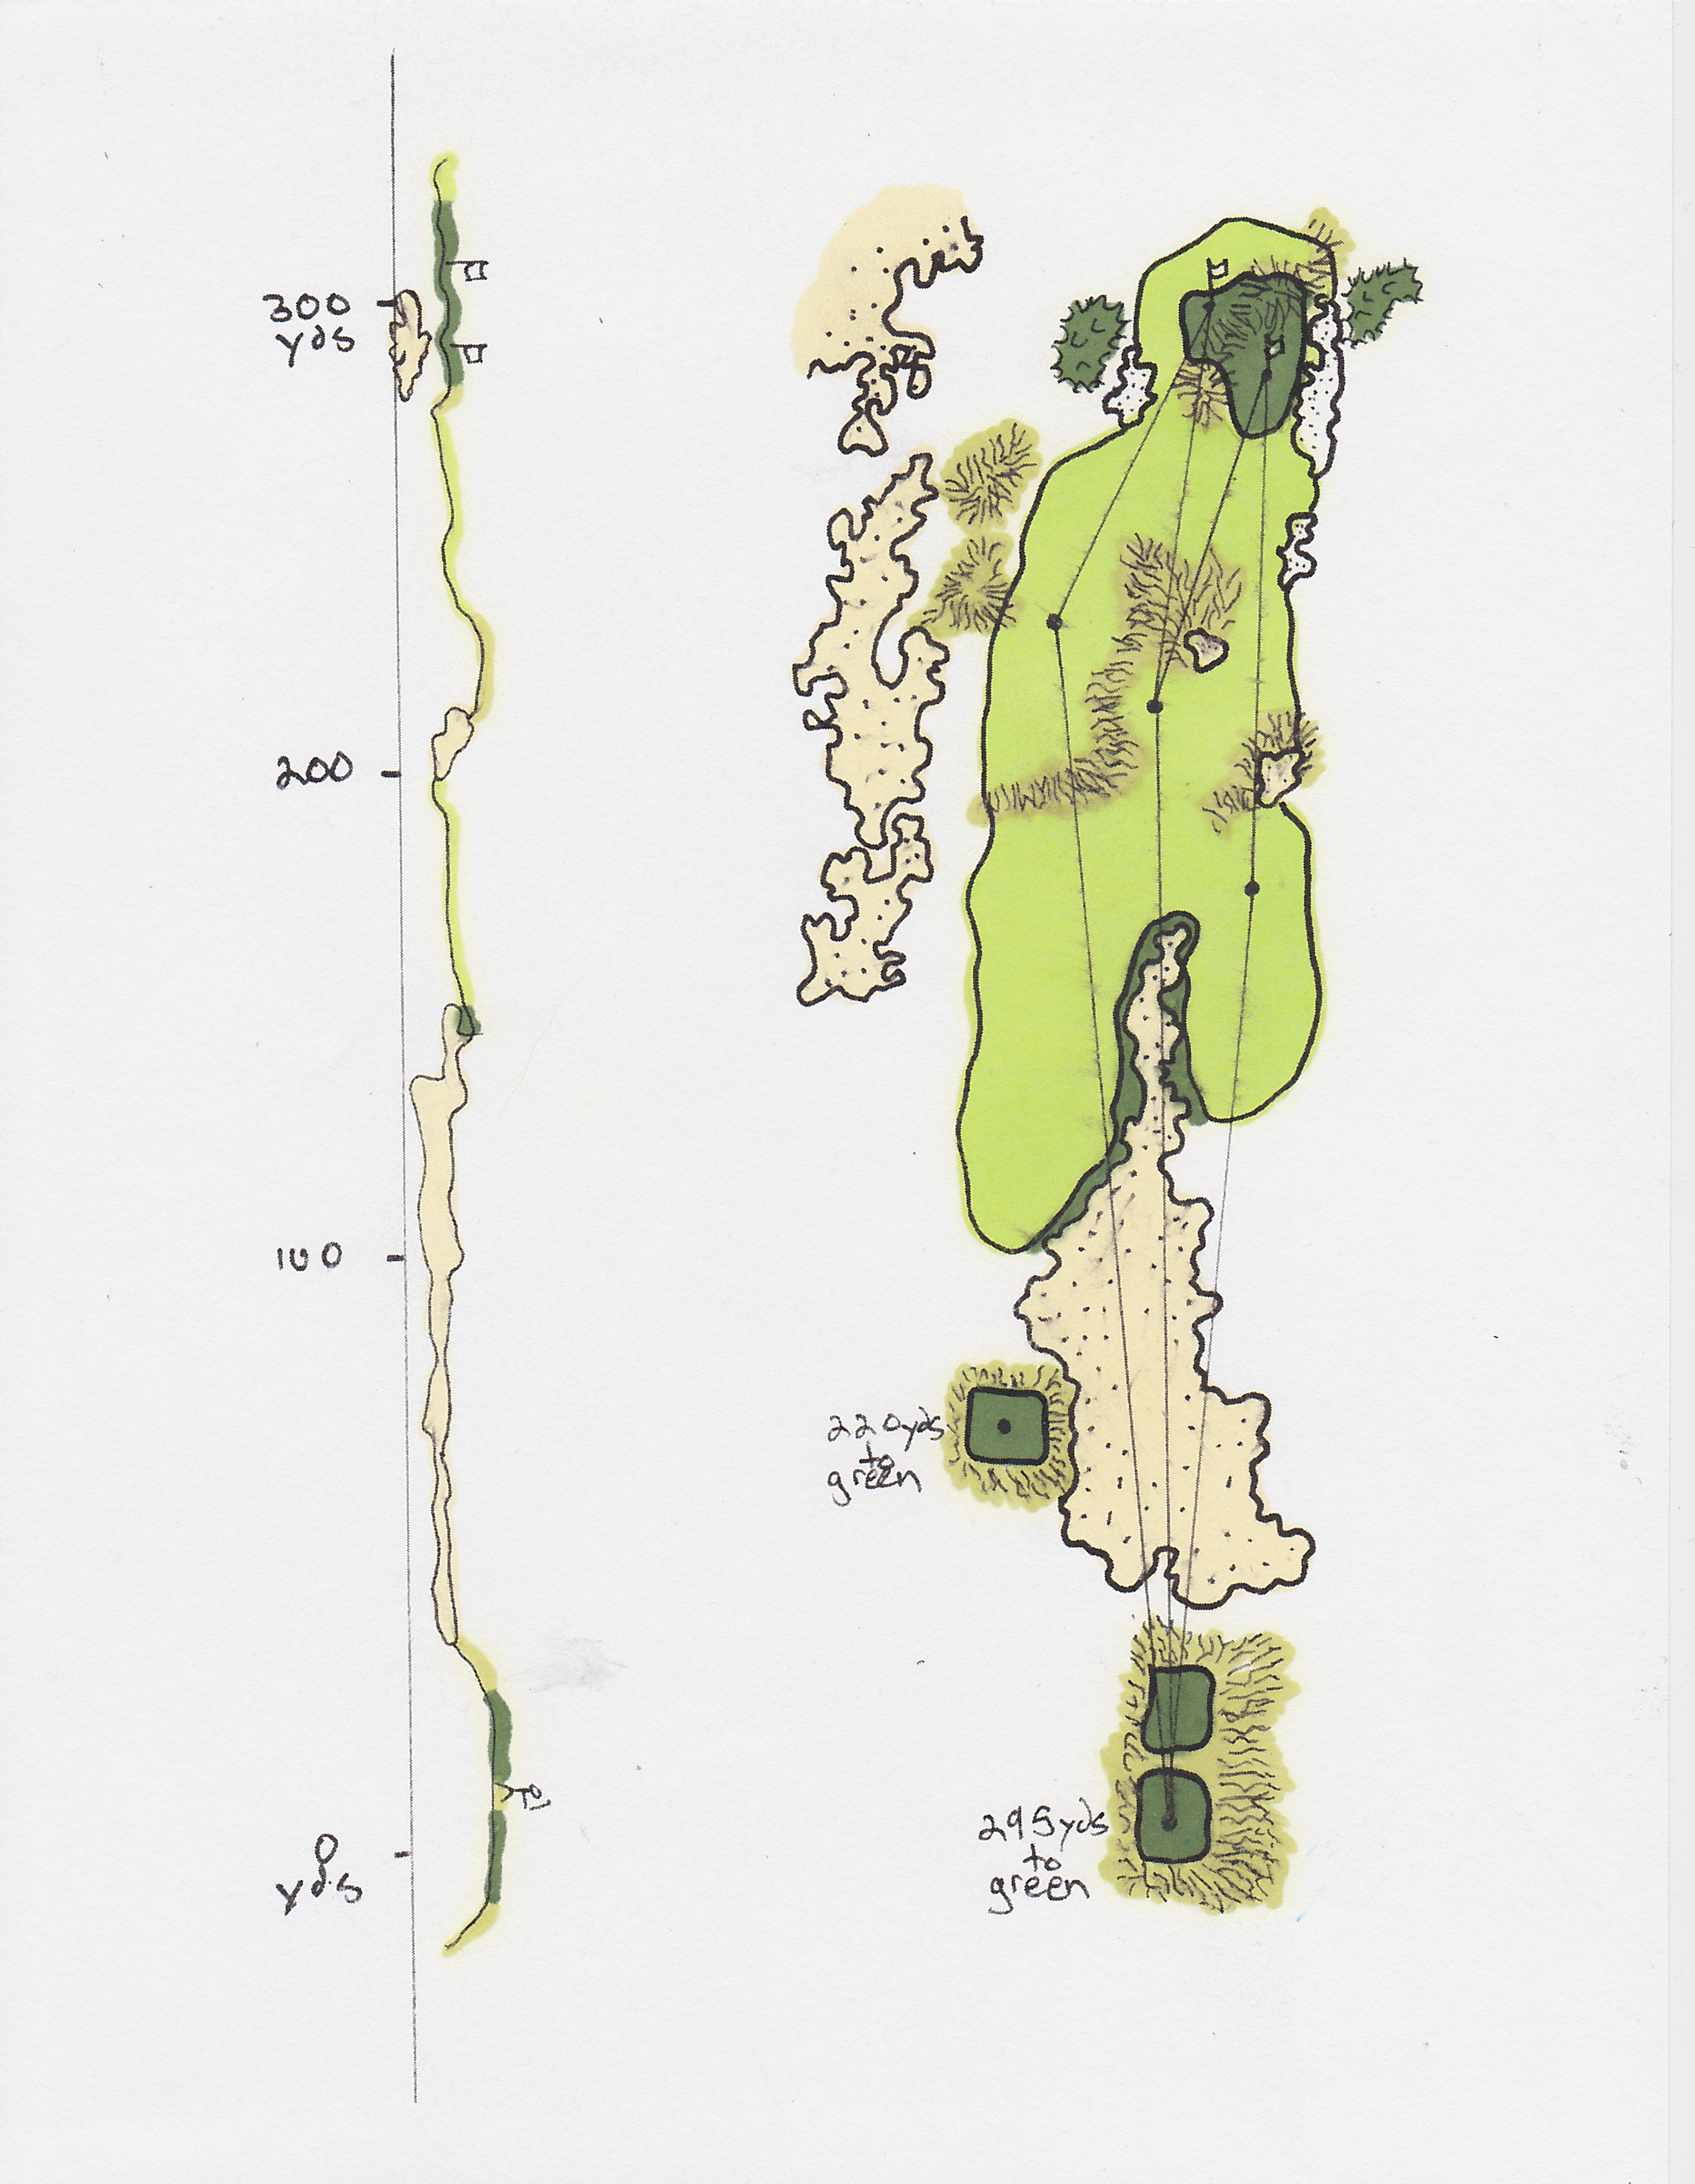 300
yds
200
100
0
yds
220yds
to
green
295yds
to
green